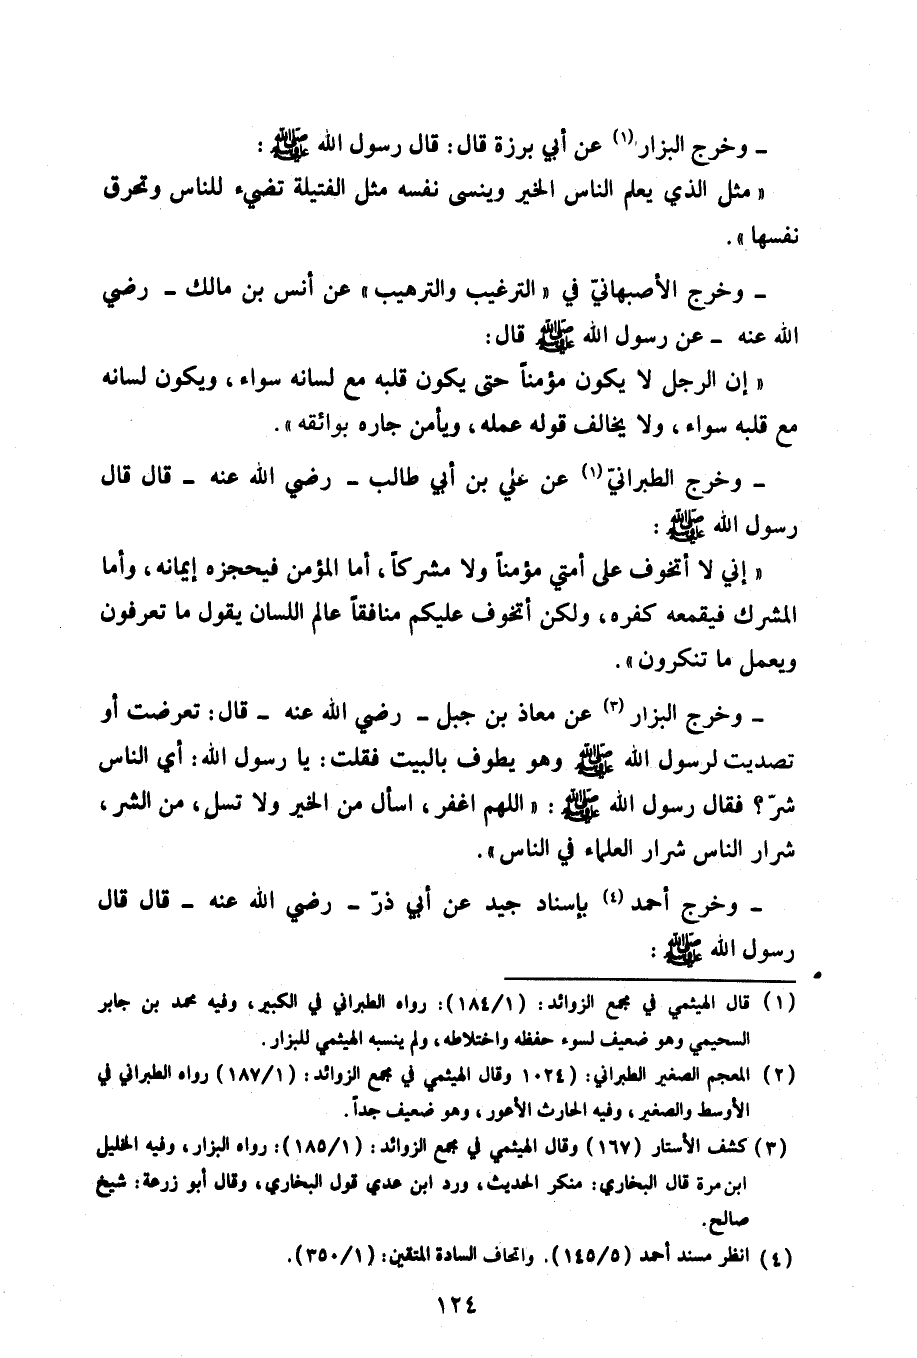 ـ وخرج البزار(١) عن أبي برزة قال: قال رسول الله ﷺ :
« مثل الذي يعلم الناس الخير وينسى نفسه مثل الفتيلة تضيء للناس وتحرق
نفسها ».
ـ وخرج الأصبهانيّ في « الترغيب والترهيب » عن أنس بن مالك ـ رضي
الله عنه ـ عن رسول الله ﷺ قال:
« إن الرجل لا يكون مؤمناً حتى يكون قلبه مع لسانه سواء ، ويكون لسانه
مع قلبه سواء ، ولا يخالف قوله عمله ، ويأمن جاره بوائقه ».
ـ وخرج الطبرانيّ(١) عن علي بن أبي طالب ـ رضي الله عنه ـ قال قال
رسول الله ﷺ :
« إني لا أتخوف على أمتي مؤمناً ولا مشركاً ، أما المؤمن فيحجزه إيمانه ، وأما
المشرك فيقمعه كفره ، ولكن أتخوف عليكم منافقاً عالم اللسان يقول ما تعرفون
ويعمل ما تنكرون ».
ـ وخرج البزار (٣) عن معاذ بن جبل ـ رضي الله عنه ـ قال: تعرضت أو
تصديت لرسول الله ﷺ وهو يطوف بالبيت فقلت: يا رسول الله: أي الناس
شرّ؟ فقال رسول الله ﷺ : « اللهم اغفر ، اسأل من الخير ولا تسل ، من الشر ،
شرار الناس شرار العلماء في الناس ».
ـ وخرج أحمد (٤) بإسناد جيد عن أبي ذرّ ـ رضي الله عنه ـ قال قال
رسول الله ﷺ :
(١) قال الهيثمي في مجمع الزوائد: (١/١٨٤): رواه الطبراني في الكبير ، وفيه محمد بن جابر
السحيمي وهو ضعيف لسوء حفظه واختلاطه ، ولم ينسبه الهيثمي للبزار .
(٢) المعجم الصغير الطبراني: (١٠٢٤ وقال الهيثمي في مجمع الزوائد: (١/١٨٧) رواه الطبراني في
الأوسط والصغير ، وفيه الحارث الأعور ، وهو ضعيف جداً .
(٣) كشف الأستار (١٦٧) وقال الهيثمي في مجمع الزوائد: (١/١٨٥): رواه البزار ، وفيه الخليل
ابن مرة قال البخاري: منكر الحديث ، ورد ابن عدي قول البخاري ، وقال أبو زرعة: شيخ
صالح.
(٤) انظر مسند أحمد (٥/١٤٥). واتحاف السادة المتقين: (١/٣٥٠).
١٢٤